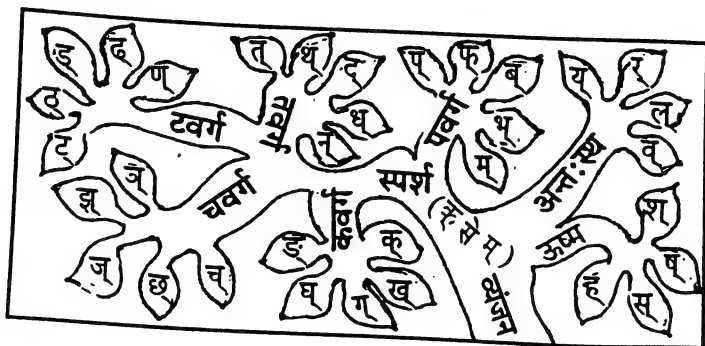 ट् ठ् ड् ढ् ण्
टवर्ग
त् थ् द् ध् न्
तवर्ग
प् फ् ब् भ् म्
पवर्ग
य् र् ल् व्
अन्त:स्थ
च् छ् ज् झ् ञ्
चवर्ग
क् ख् ग् घ् ङ्
कवर्ग
स्पर्श
(क् से म्)
श् ष् स् ह्
ऊष्म
व्यंजन